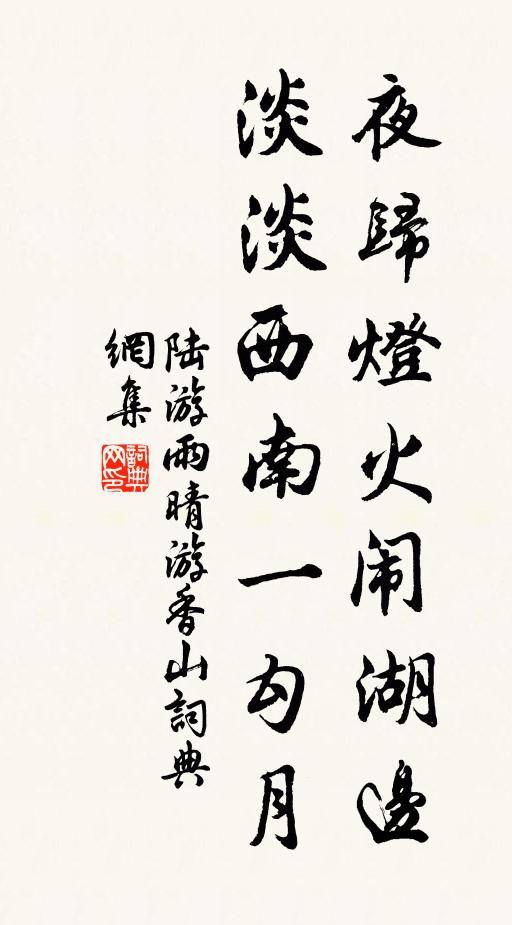 夜歸燈火闹湖邊
淡淡西南一勾月
陆游雨晴游香山詞典
網集
詞典
网印